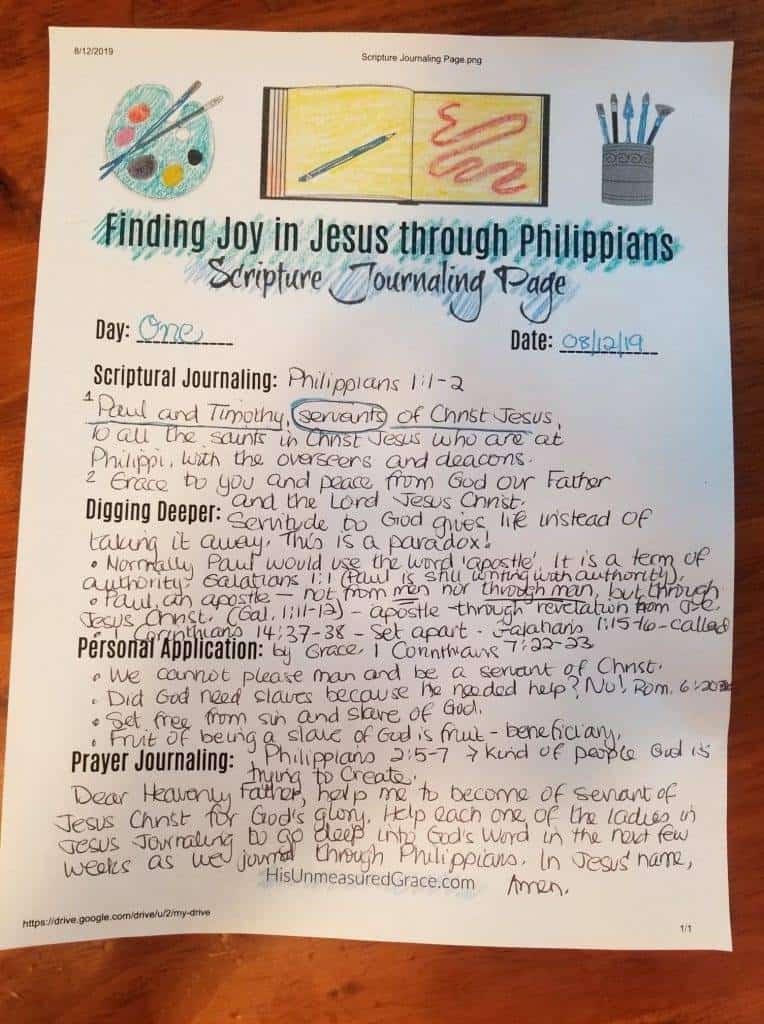 8/12/2019
Scripture Journaling Page.png
Finding Joy in Jesus through Philippians
Scripture Journaling Page
Day: One
Date: 08/12/19
Scriptural Journaling: Philippians 1:1-2
1 Paul and Timothy, servants of Christ Jesus,
To all the saints in Christ Jesus who are at
Philippi, with the overseers and deacons.
2 Grace to you and peace from God our Father
and the Lord Jesus Christ.
Digging Deeper: Servitude to God gives life instead of
taking it away. This is a paradox!
• Normally Paul would use the word 'apostle'. It is a term of
authority. Galatians 1:1 (Paul is still writing with authority).
• Paul, an apostle - not from men nor through man, but through
Jesus Christ. (Gal. 1:11-12) - apostle through revelation from
• 1 Corinthians 14:37-38 - Set apart - Galatians 1:15-16 - called
Personal Application: by Grace. 1 Corinthians 7:22-23
• We cannot please man and be a servant of Christ.
• Did God need slaves because he needed help? No! Rom. 6:20
• Set free from sin and slave of God.
• Fruit of being a slave of God is fruit - beneficiary.
Prayer Journaling: Philippians 2:5-7 → kind of people God is
trying to create.
Dear Heavenly Father, help me to become of servant of
Jesus Christ for God's glory. Help each one of the ladies in
Jesus Journaling to go deep into God's Word in the next few
weeks as we journal through Philippians. In Jesus' name,
HisUnmeasuredGrace.com
Amen.
https://drive.google.com/drive/u/2/my-drive
1/1